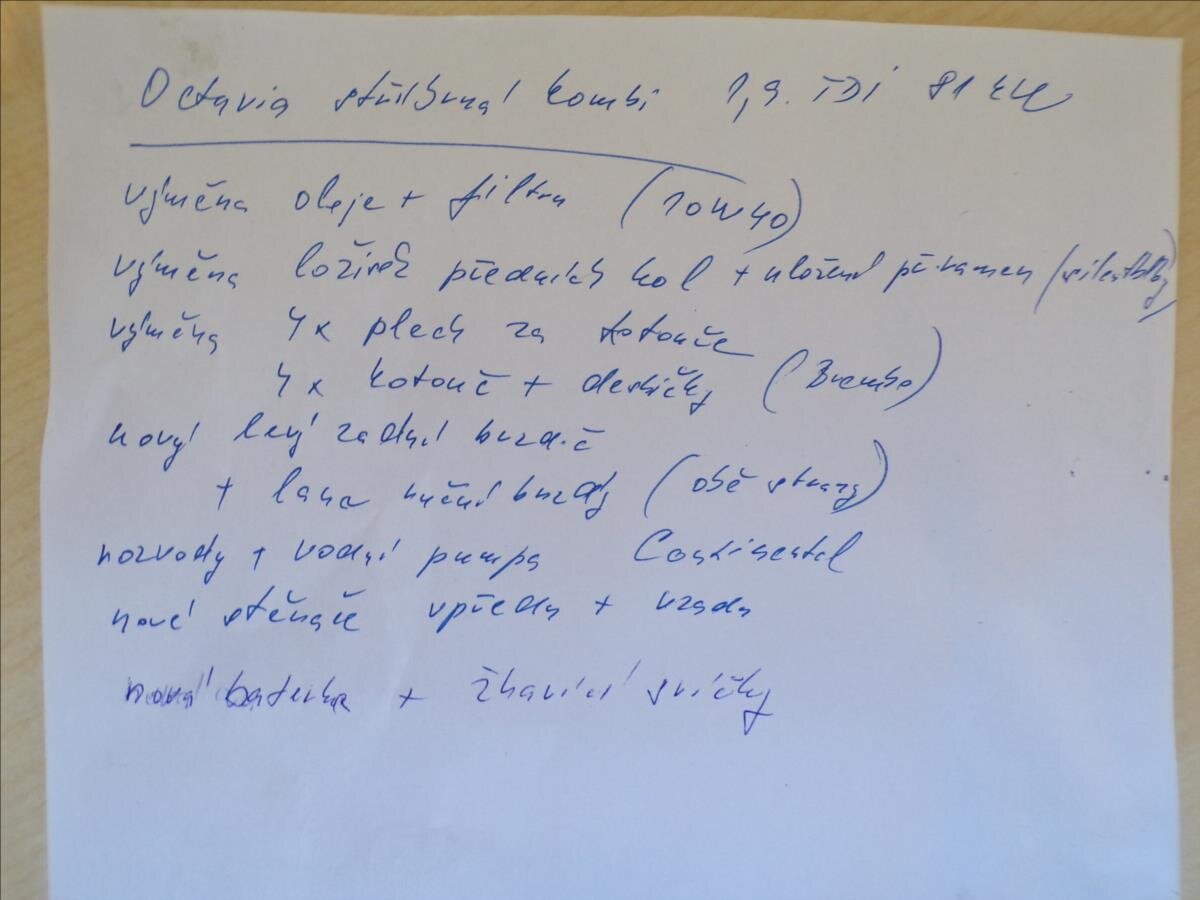 Octavia stříbrná kombi 1,9. TDI 81 kW
výměna oleje + filtru (10W40)
výměna ložisek předních kol + uložení př. ramen (silentbloky)
výměna 4x plech za kotouče
4x kotouč + destičky (Brembo)
nový levý zadní brzdič
+ lana ruční brzdy (obě strany)
rozvody + vodní pumpa Continental
nové stěrače vpředu + vzadu
nová baterka + žhavící svíčky